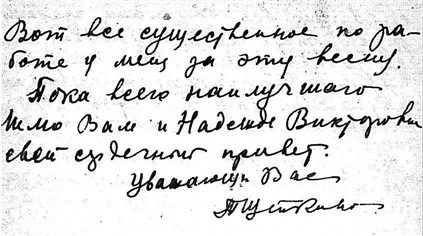 Вот все существенное по ра-
боте у меня за эту весну.
Пока всего наилучшаго
Шлю Вам и Надежде Викторовне
свой сердечный привет.
Уважающий Вас